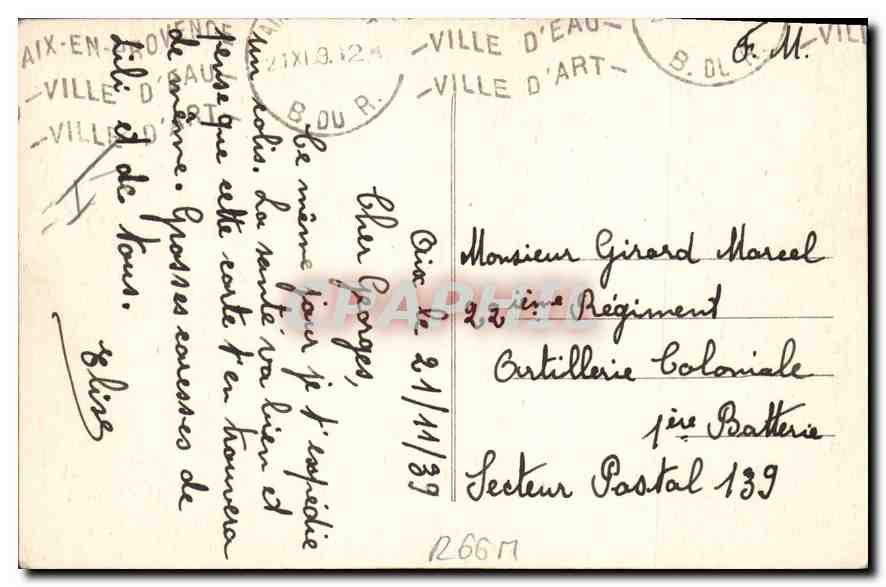 AIX-EN-PROVENCE
-VILLE D'EAU
-VILLE D'ART
21 XI
B. DU R.
-VILLE D'EAU-
-VILLE D'ART-
B. DU R.
-VILLE
F. M.
Aix le 21/11/39
Cher Georges,
Ce même jour je t'expédie
un colis. La santé va bien et
pense que cette carte t'en trouvera
de même. Grosses caresses de
Lili et de tous.
Elise
Monsieur Girard Marcel
22ième Régiment
Artillerie Coloniale
1ère Batterie
Secteur Postal 139
CPAPHIL
R66M